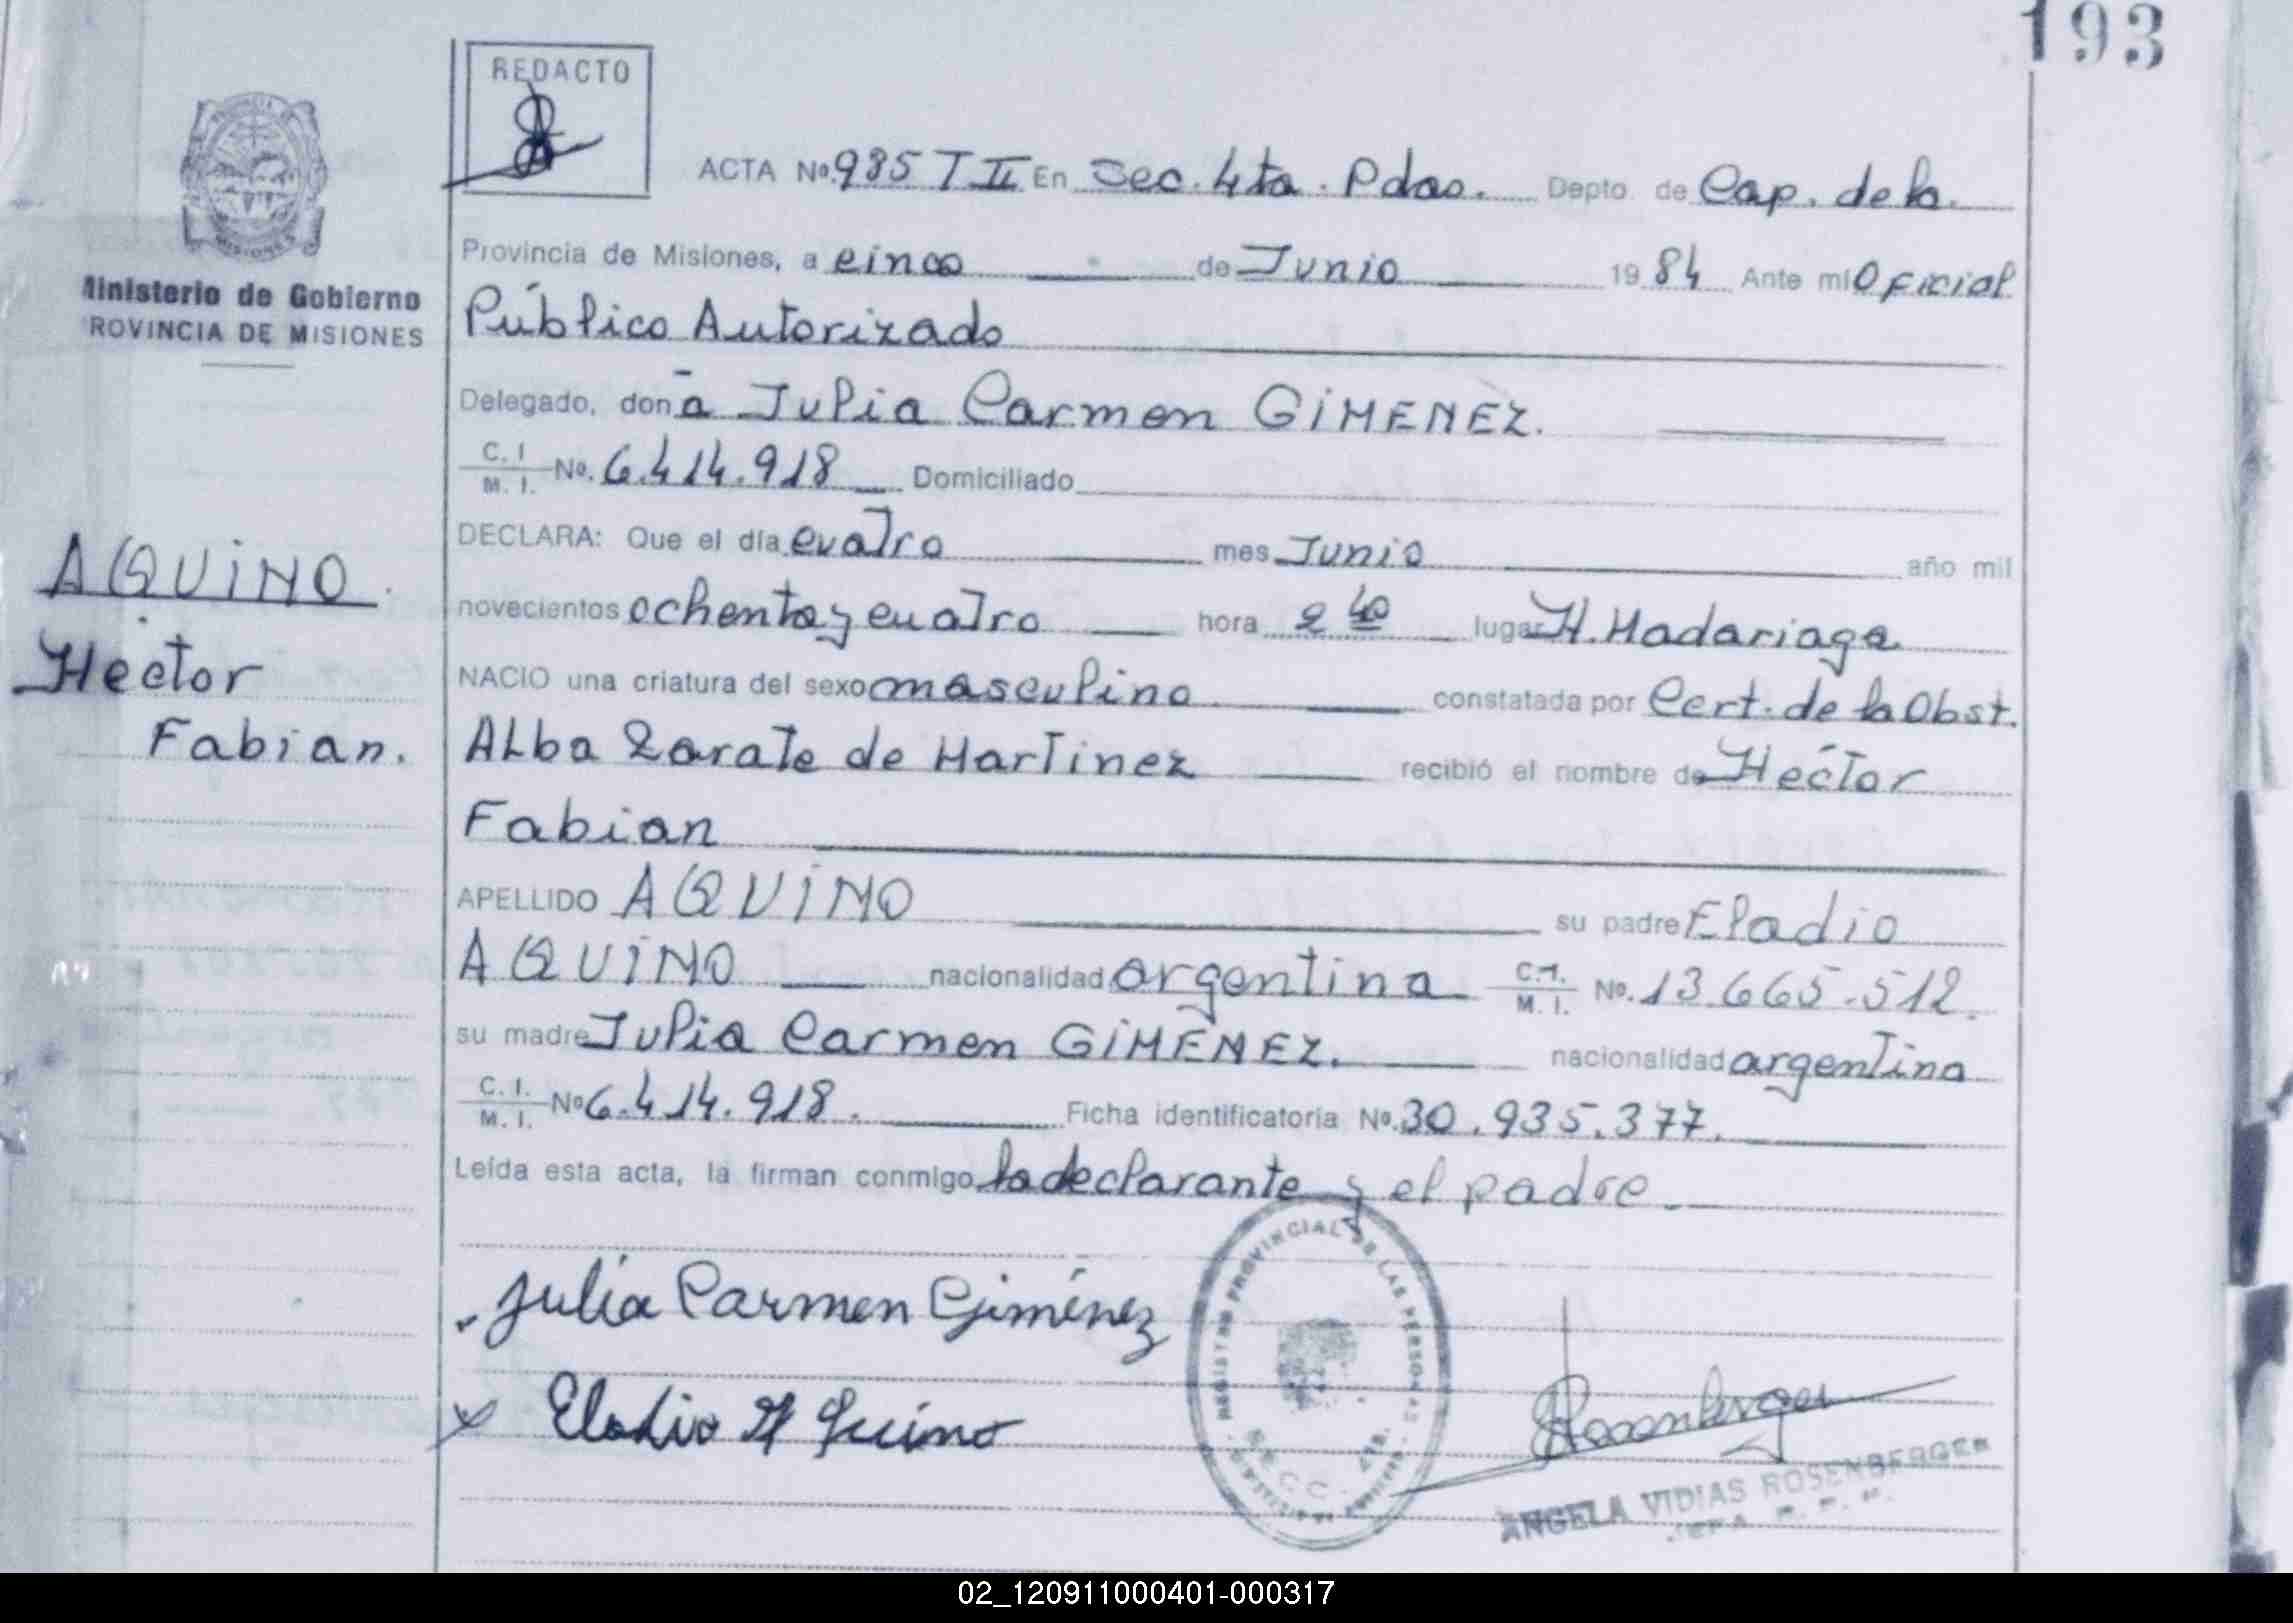 193
REDACTO
ACTA Nº 985 T II En Sec. 4ta. Pdas. Depto. de Cap. de la
Provincia de Misiones, a cinco de Junio 1984 Ante mí Oficial
Ministerio de Gobierno
ROVINCIA DE MISIONES
Público Autorizado
Delegado, don a Julia Carmen GiMENEZ.
C. I. M. I. Nº. 6.414.918 Domiciliado
DECLARA: Que el día cuatro mes Junio año mil
AQUiNO
novecientos ochenta y cuatro hora 2 40 lugar H. Madariaga
Hector
NACIO una criatura del sexo masculino constatada por Cert. de la Obst.
Fabian.
Alba Zarate de Martinez recibió el nombre de Hector
Fabian
APELLIDO AQUiNO su padre Eladio
AQUiNO nacionalidad argentina C.I. M. I. Nº. 13.665.512.
su madre Julia Carmen GiMENEZ. nacionalidad argentina
C. I. M. I. Nº 6.414.918. Ficha identificatoria Nº. 30.935.377.
Leída esta acta, la firman conmigo la declarante y el padre.
REGISTRO PROVINCIAL DE LAS PERSONAS
SECC. 4TA.
Julia Carmen Giménez
Eladio Aquino
Rosenberger
ANGELA VIDIAS ROSENBERGER
JEFA R. P. P.
02_120911000401-000317